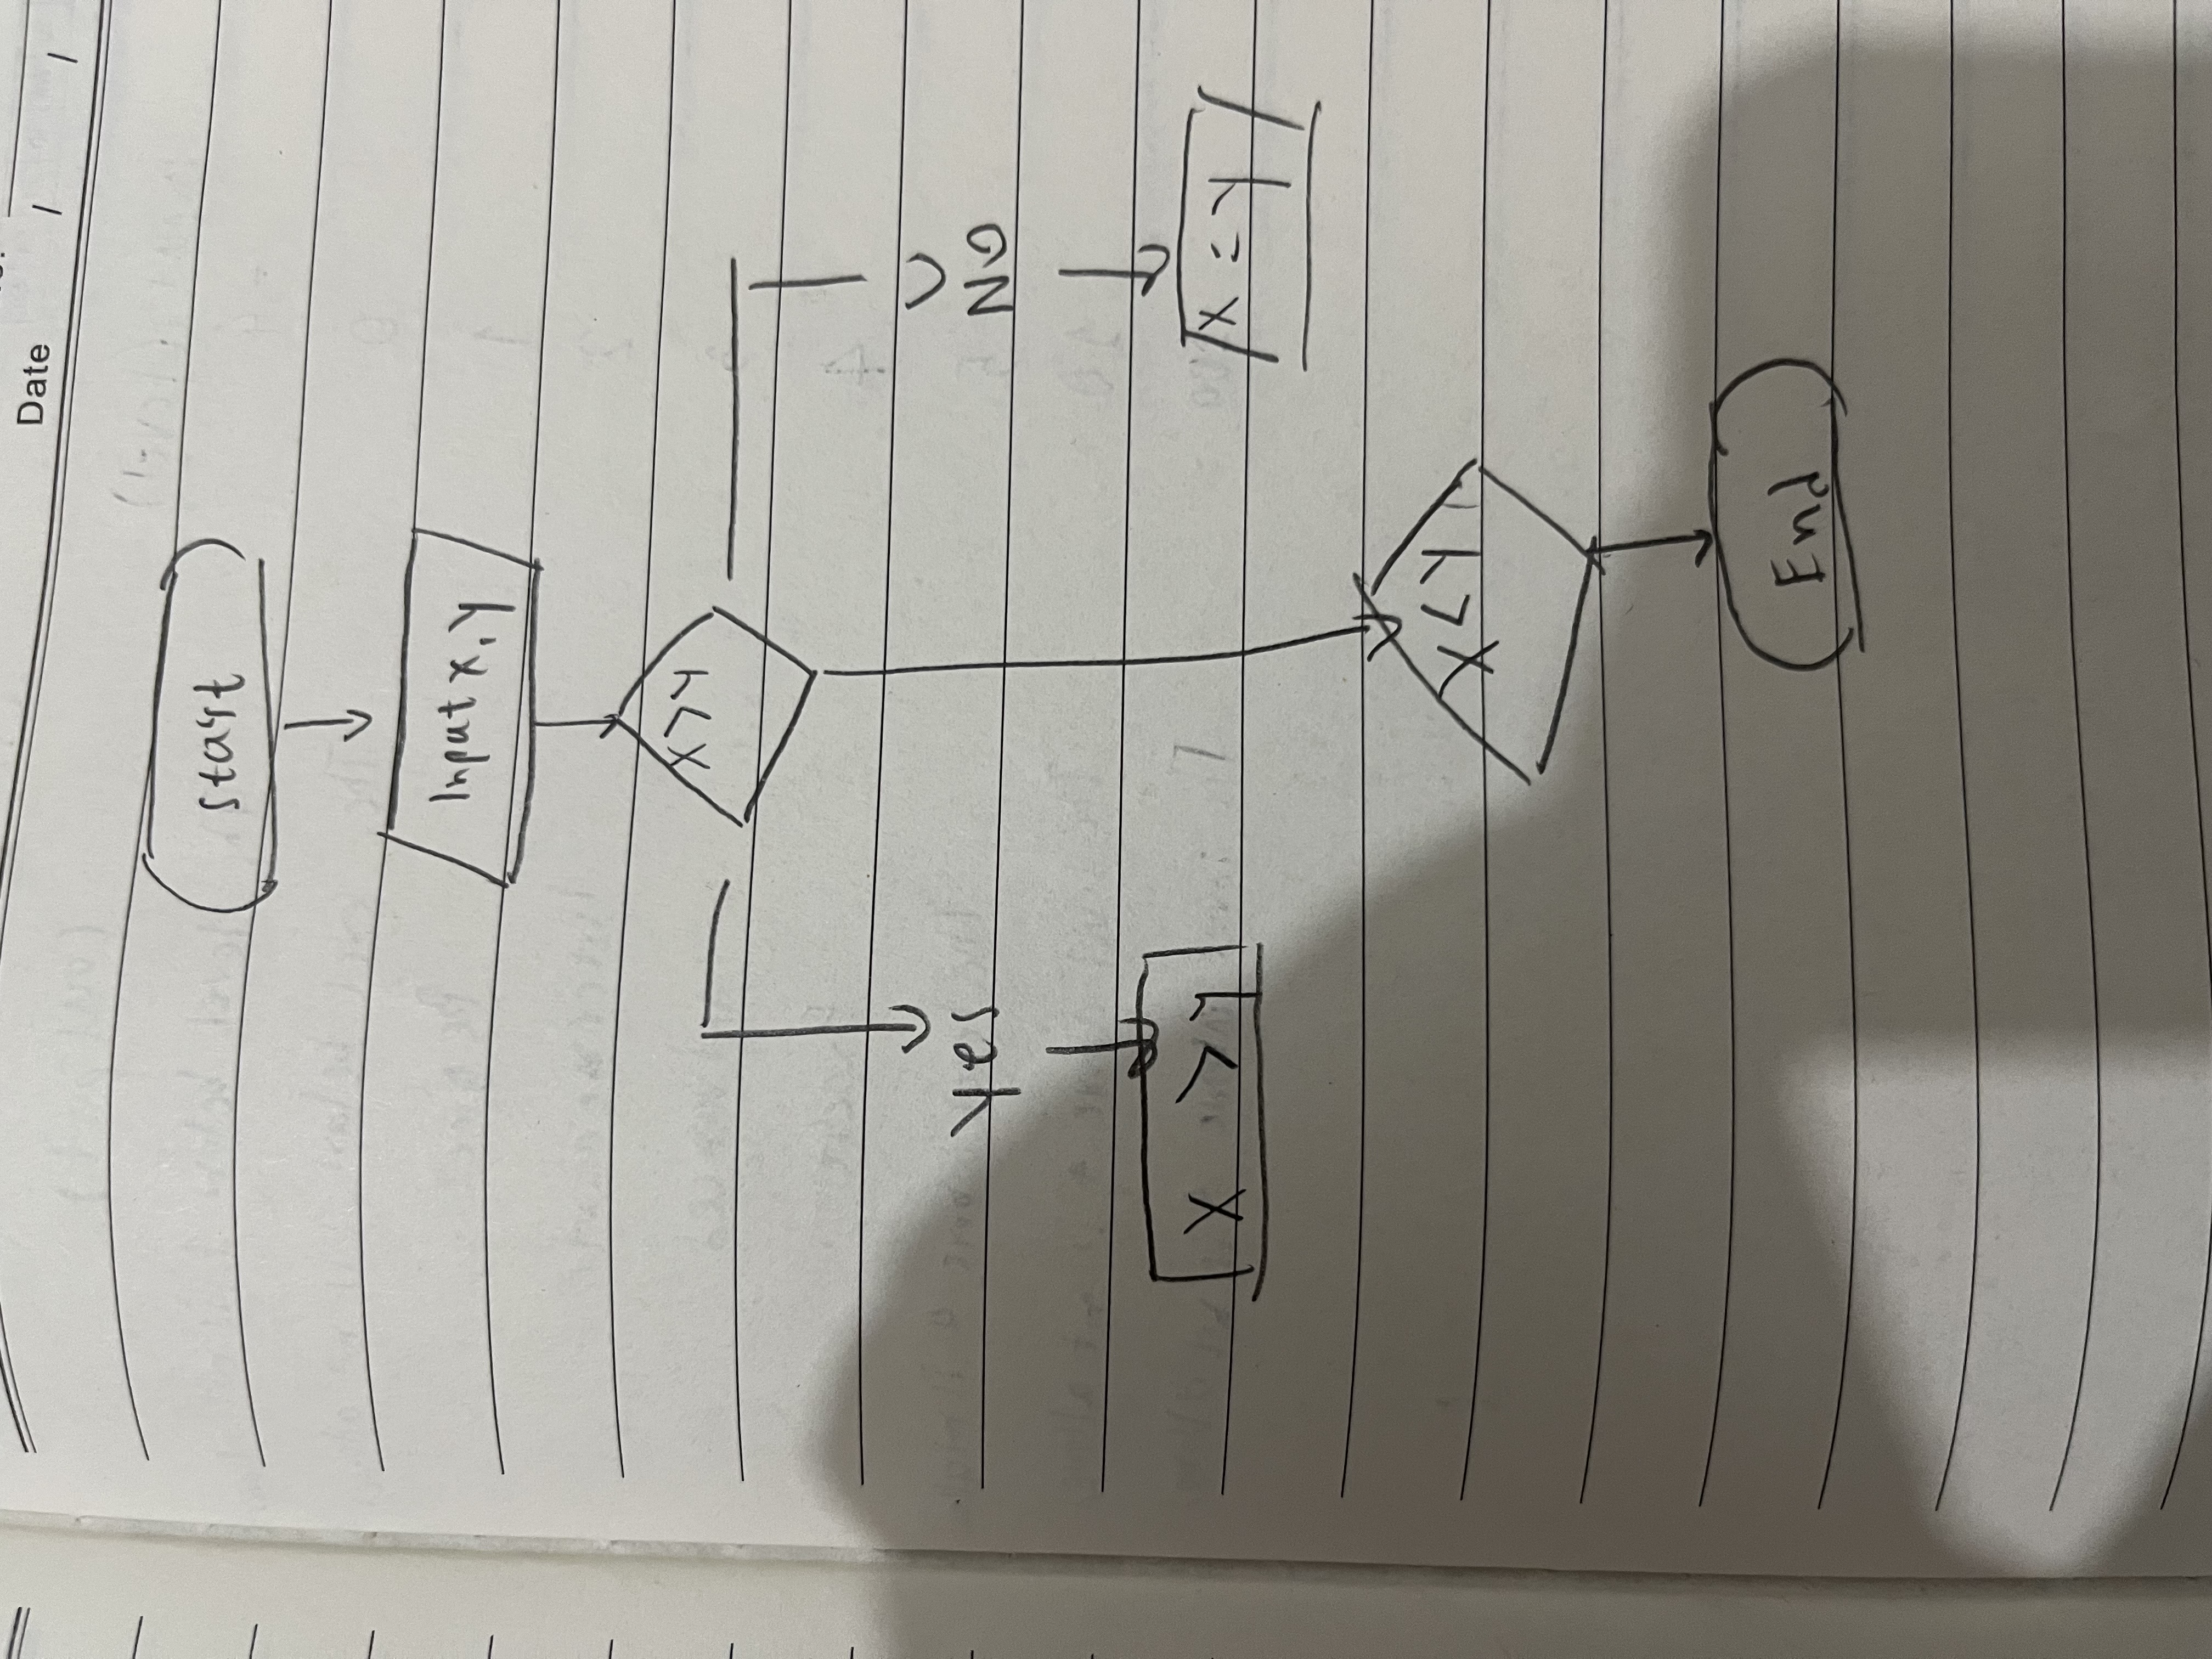 Date / /
start
Input x, y
X > Y
yes
NO
X > y
X = y
X < Y
End